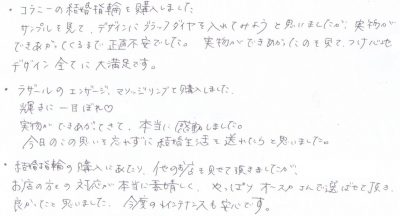 ・コラニーの結婚指輪を購入しました
サンプルを見て、デザインにブラックダイヤを入れてみようと思いましたが、実物が
できあがってくるまで正直不安でした。実物ができあがったのを見て、つけ心地
デザイン全てに大満足です。
・ラザールのエンゲージ、マリッジリングを購入しました。
輝きに一目ぼれ♡
実物ができあがってきて、本当に感動しました。
今日のこの思いを忘れずに結婚生活を送れたらと思いました。
・結婚指輪の購入にあたり、他のお店を見せて頂きましたが、
お店の方の対応が本当に素晴しく、やっぱりオースカさんで選ばせて頂き、
良かったと思いました。今後のメインテナンスも安心です。